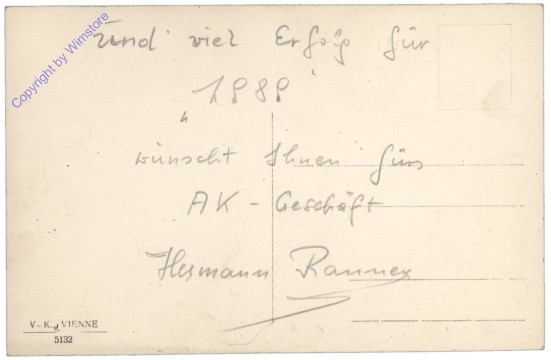 Und viel Erfolg für
"1989"
wünscht Ihnen fürs
AK - Geschäft
Hermann
V-K., VIENNE
5132
Copyright by Wimstore